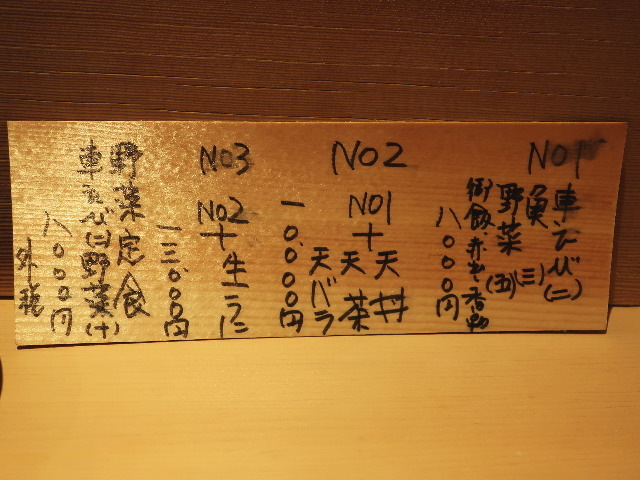 NO1
車えび(二)
魚(三)
野菜(五)
御飯赤出香物
八〇〇〇円
NO2
NO1
+
天丼
天茶
天バラ
一〇.〇〇〇円
NO3
NO2
+
生ウニ
一三.〇〇〇円
野菜定食
車えび(二)野菜(十)
八〇〇〇円
外税